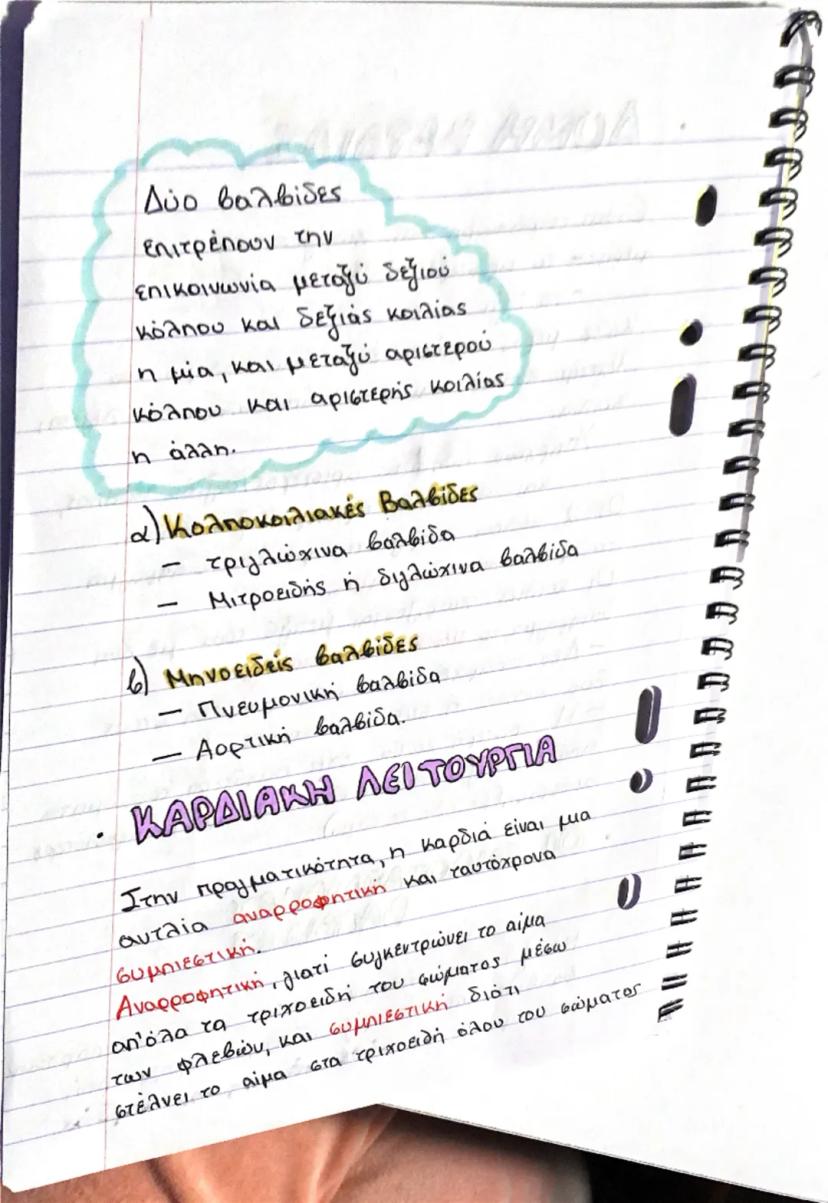 Δύο βαλβίδες
επιτρέπουν την
επικοινωνία μεταξύ δεξιού
κόλπου και δεξιάς κοιλίας
η μία, και μεταξύ αριστερού
κόλπου και αριστερής κοιλίας
η άλλη.
α) Κολποκοιλιακές Βαλβίδες
— τριγλώχινα βαλβίδα
— Μιτροειδής ή διγλώχινα βαλβίδα
β) Μηνοειδείς βαλβίδες
— Πνευμονική βαλβίδα
— Αορτική βαλβίδα.
· ΚΑΡΔΙΑΚΗ ΛΕΙΤΟΥΡΓΙΑ
Στην πραγματικότητα, η καρδιά είναι μια
αντλία αναρροφητική και ταυτόχρονα
συμπιεστική.
Αναρροφητική, γιατί συγκεντρώνει το αίμα
απ'όλα τα τριχοειδή του σώματος μέσω
των φλεβών, και συμπιεστική διότι
στέλνει το αίμα στα τριχοειδή όλου του σώματος